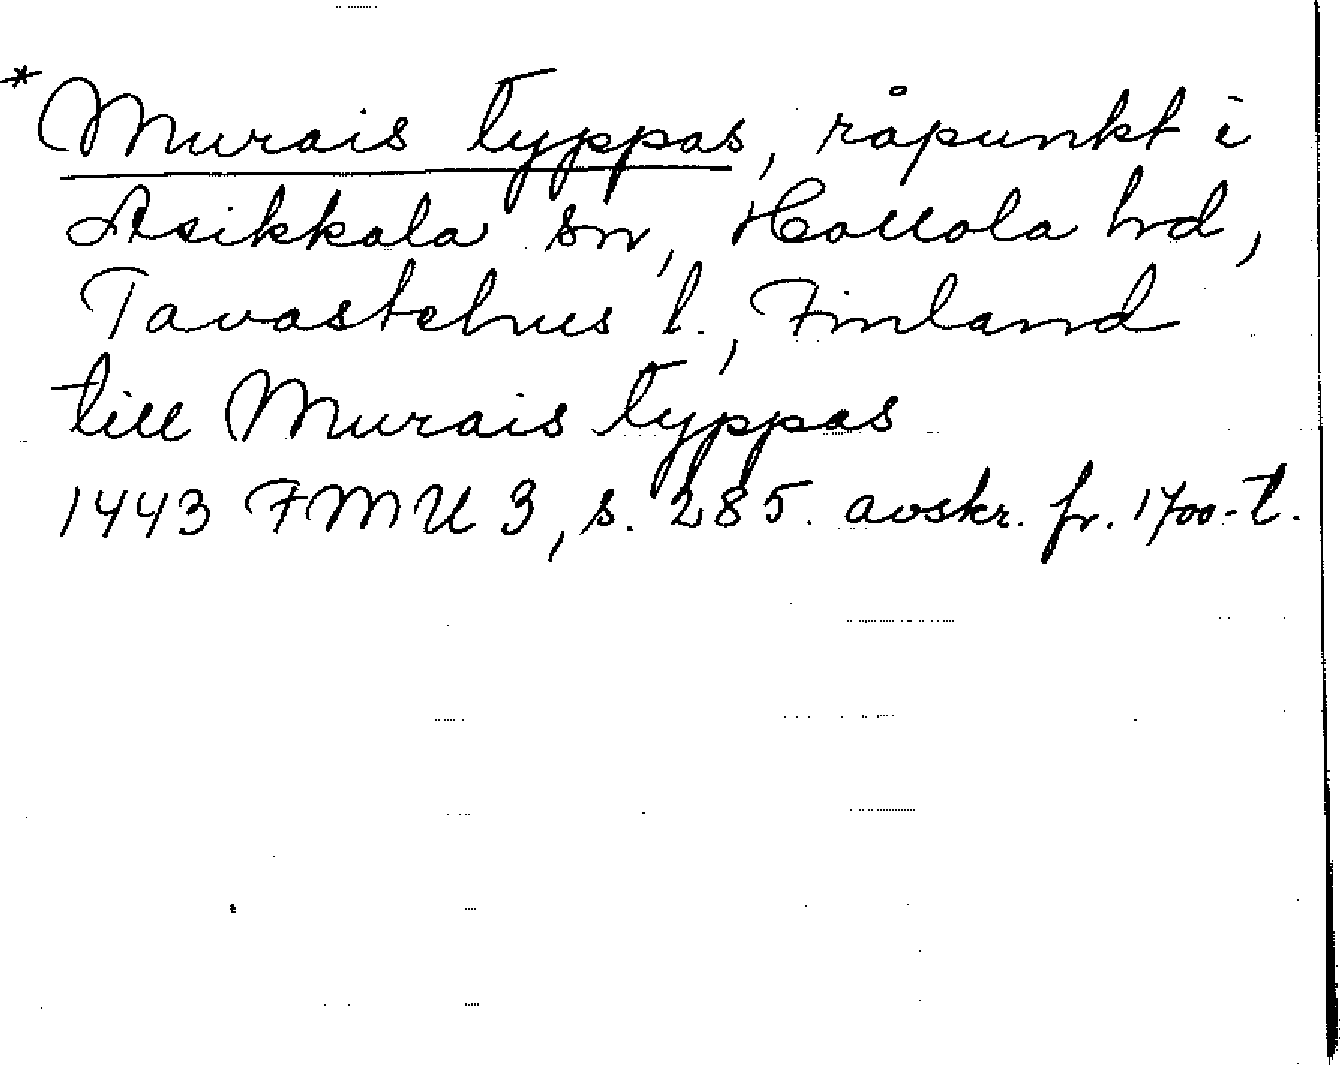 *Murais typpas, råpunkt i
Asikkala sn, Hollola hd,
Tavastehus l., Finland
till Murais typpas
1443 FMU 3, s. 285. avskr. fr. 1700-t.